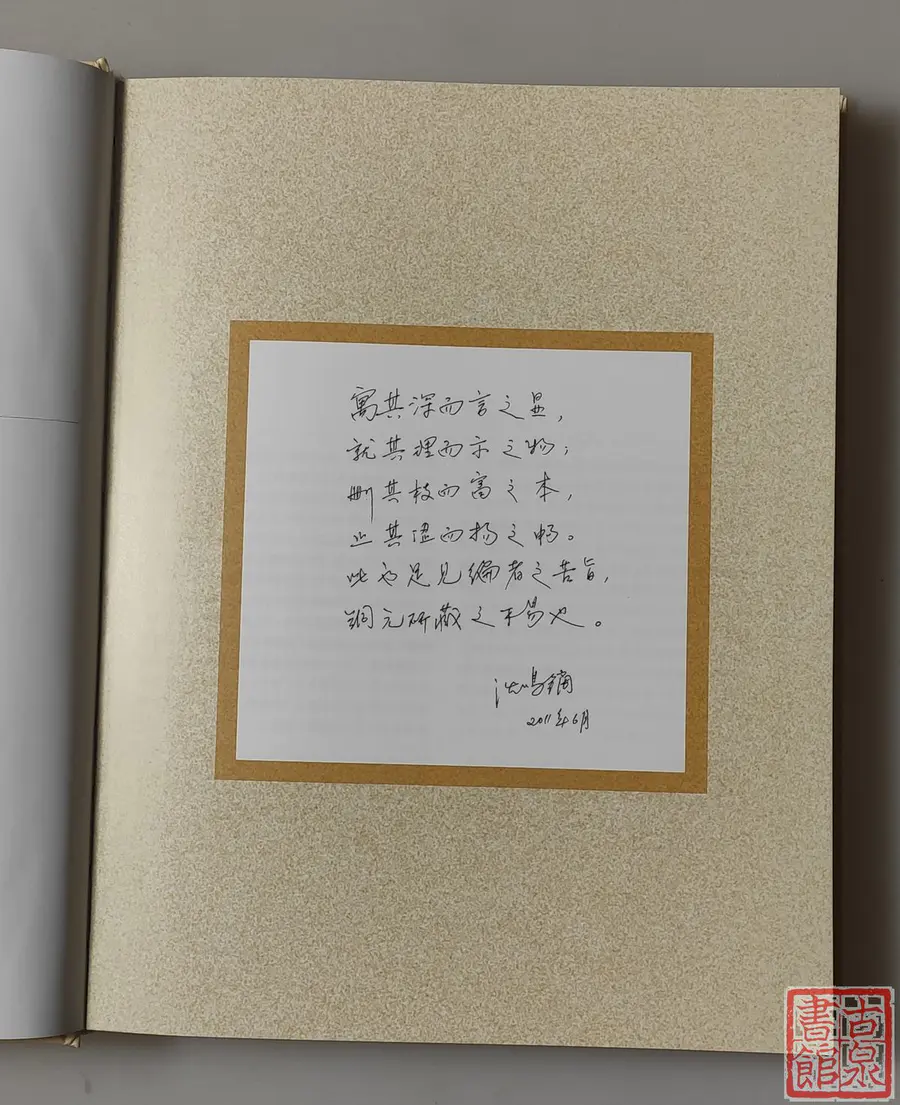 寓其深而言之显，
就其理而示之物；
删其枝而富之本，
止其虚而扬之畅。
此为足见编者之苦旨，
铜元研藏之不易也。
沈鸣镝
2011年6月
古泉
書館